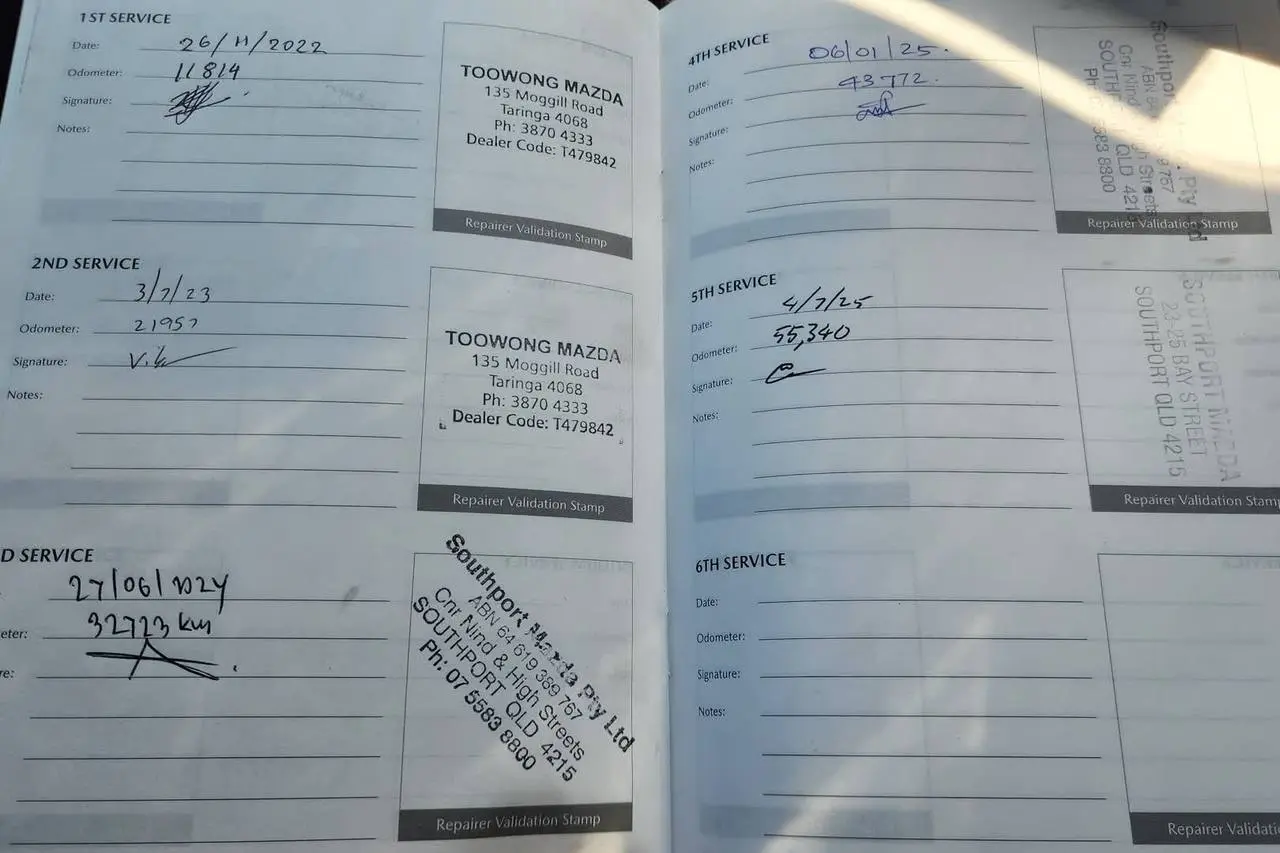 1ST SERVICE
Date: 26/11/2022
Odometer: 11814
Signature:
Notes:
TOOWONG MAZDA
135 Moggill Road
Taringa 4068
Ph: 3870 4333
Dealer Code: T479842
Repairer Validation Stamp
2ND SERVICE
Date: 3/7/23
Odometer: 21957
Signature:
Notes:
TOOWONG MAZDA
135 Moggill Road
Taringa 4068
Ph: 3870 4333
Dealer Code: T479842
Repairer Validation Stamp
D SERVICE
27/06/2024
eter: 32723 km
re:
Southport Mazda Pty Ltd
ABN 64 619 389 767
Cnr Nind & High Streets
SOUTHPORT QLD 4215
Ph: 07 5583 8800
Repairer Validation Stamp
4TH SERVICE
Date: 06/01/25.
Odometer: 43772.
Signature:
Notes:
Southport Pty Ltd
ABN 64 767
Cnr Nind Streets
QLD 4215
Ph 8800
Repairer Validation Stamp
5TH SERVICE
Date: 4/7/25
Odometer: 55,340
Signature:
Notes:
SOUTHPORT MAZDA
23-25 BAY STREET
SOUTHPORT QLD 4215
Repairer Validation Stamp
6TH SERVICE
Date:
Odometer:
Signature:
Notes:
Repairer Validati